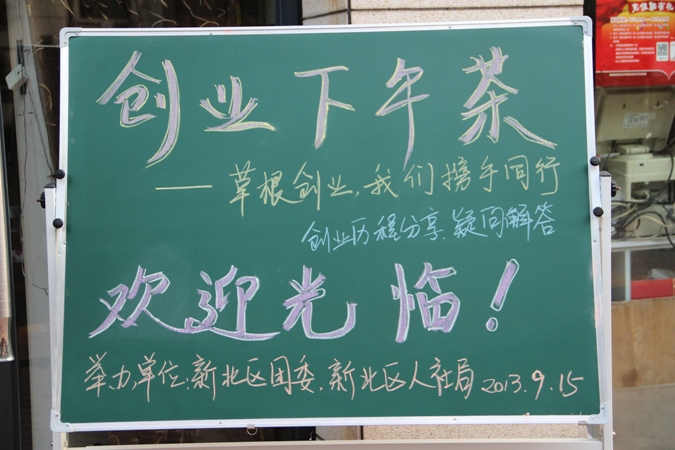 创业下午茶
——草根创业,我们携手同行
创业历程分享、疑问解答
欢迎光临!
举办单位:新北区团委、新北区人社局 2013.9.15